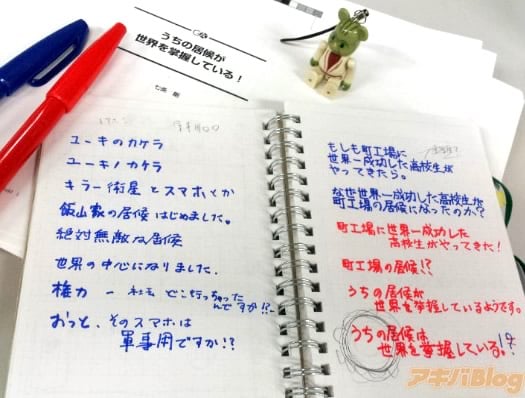 うちの居候が
世界を掌握している!
七条 剛
ユーキのカケラ
ユーキノカケラ
キラー衛星とスマホとか
飯山家の居候はじめました。
絶対無敵な居候
世界の中心になりました.
権力 ー
どこ行っちゃった
んですか!?
おっと、そのスマホは
軍事用ですか!?
もしも町工場に
世界一成功した高校生が
やってきたら。
なぜ世界一成功した高校生が
町工場の居候になったのか?
町工場に世界一成功した
高校生がやってきた!
町工場の居候!?
うちの居候が
世界を掌握しているようです。
うちの居候は
世界を掌握している。
アキバBlog